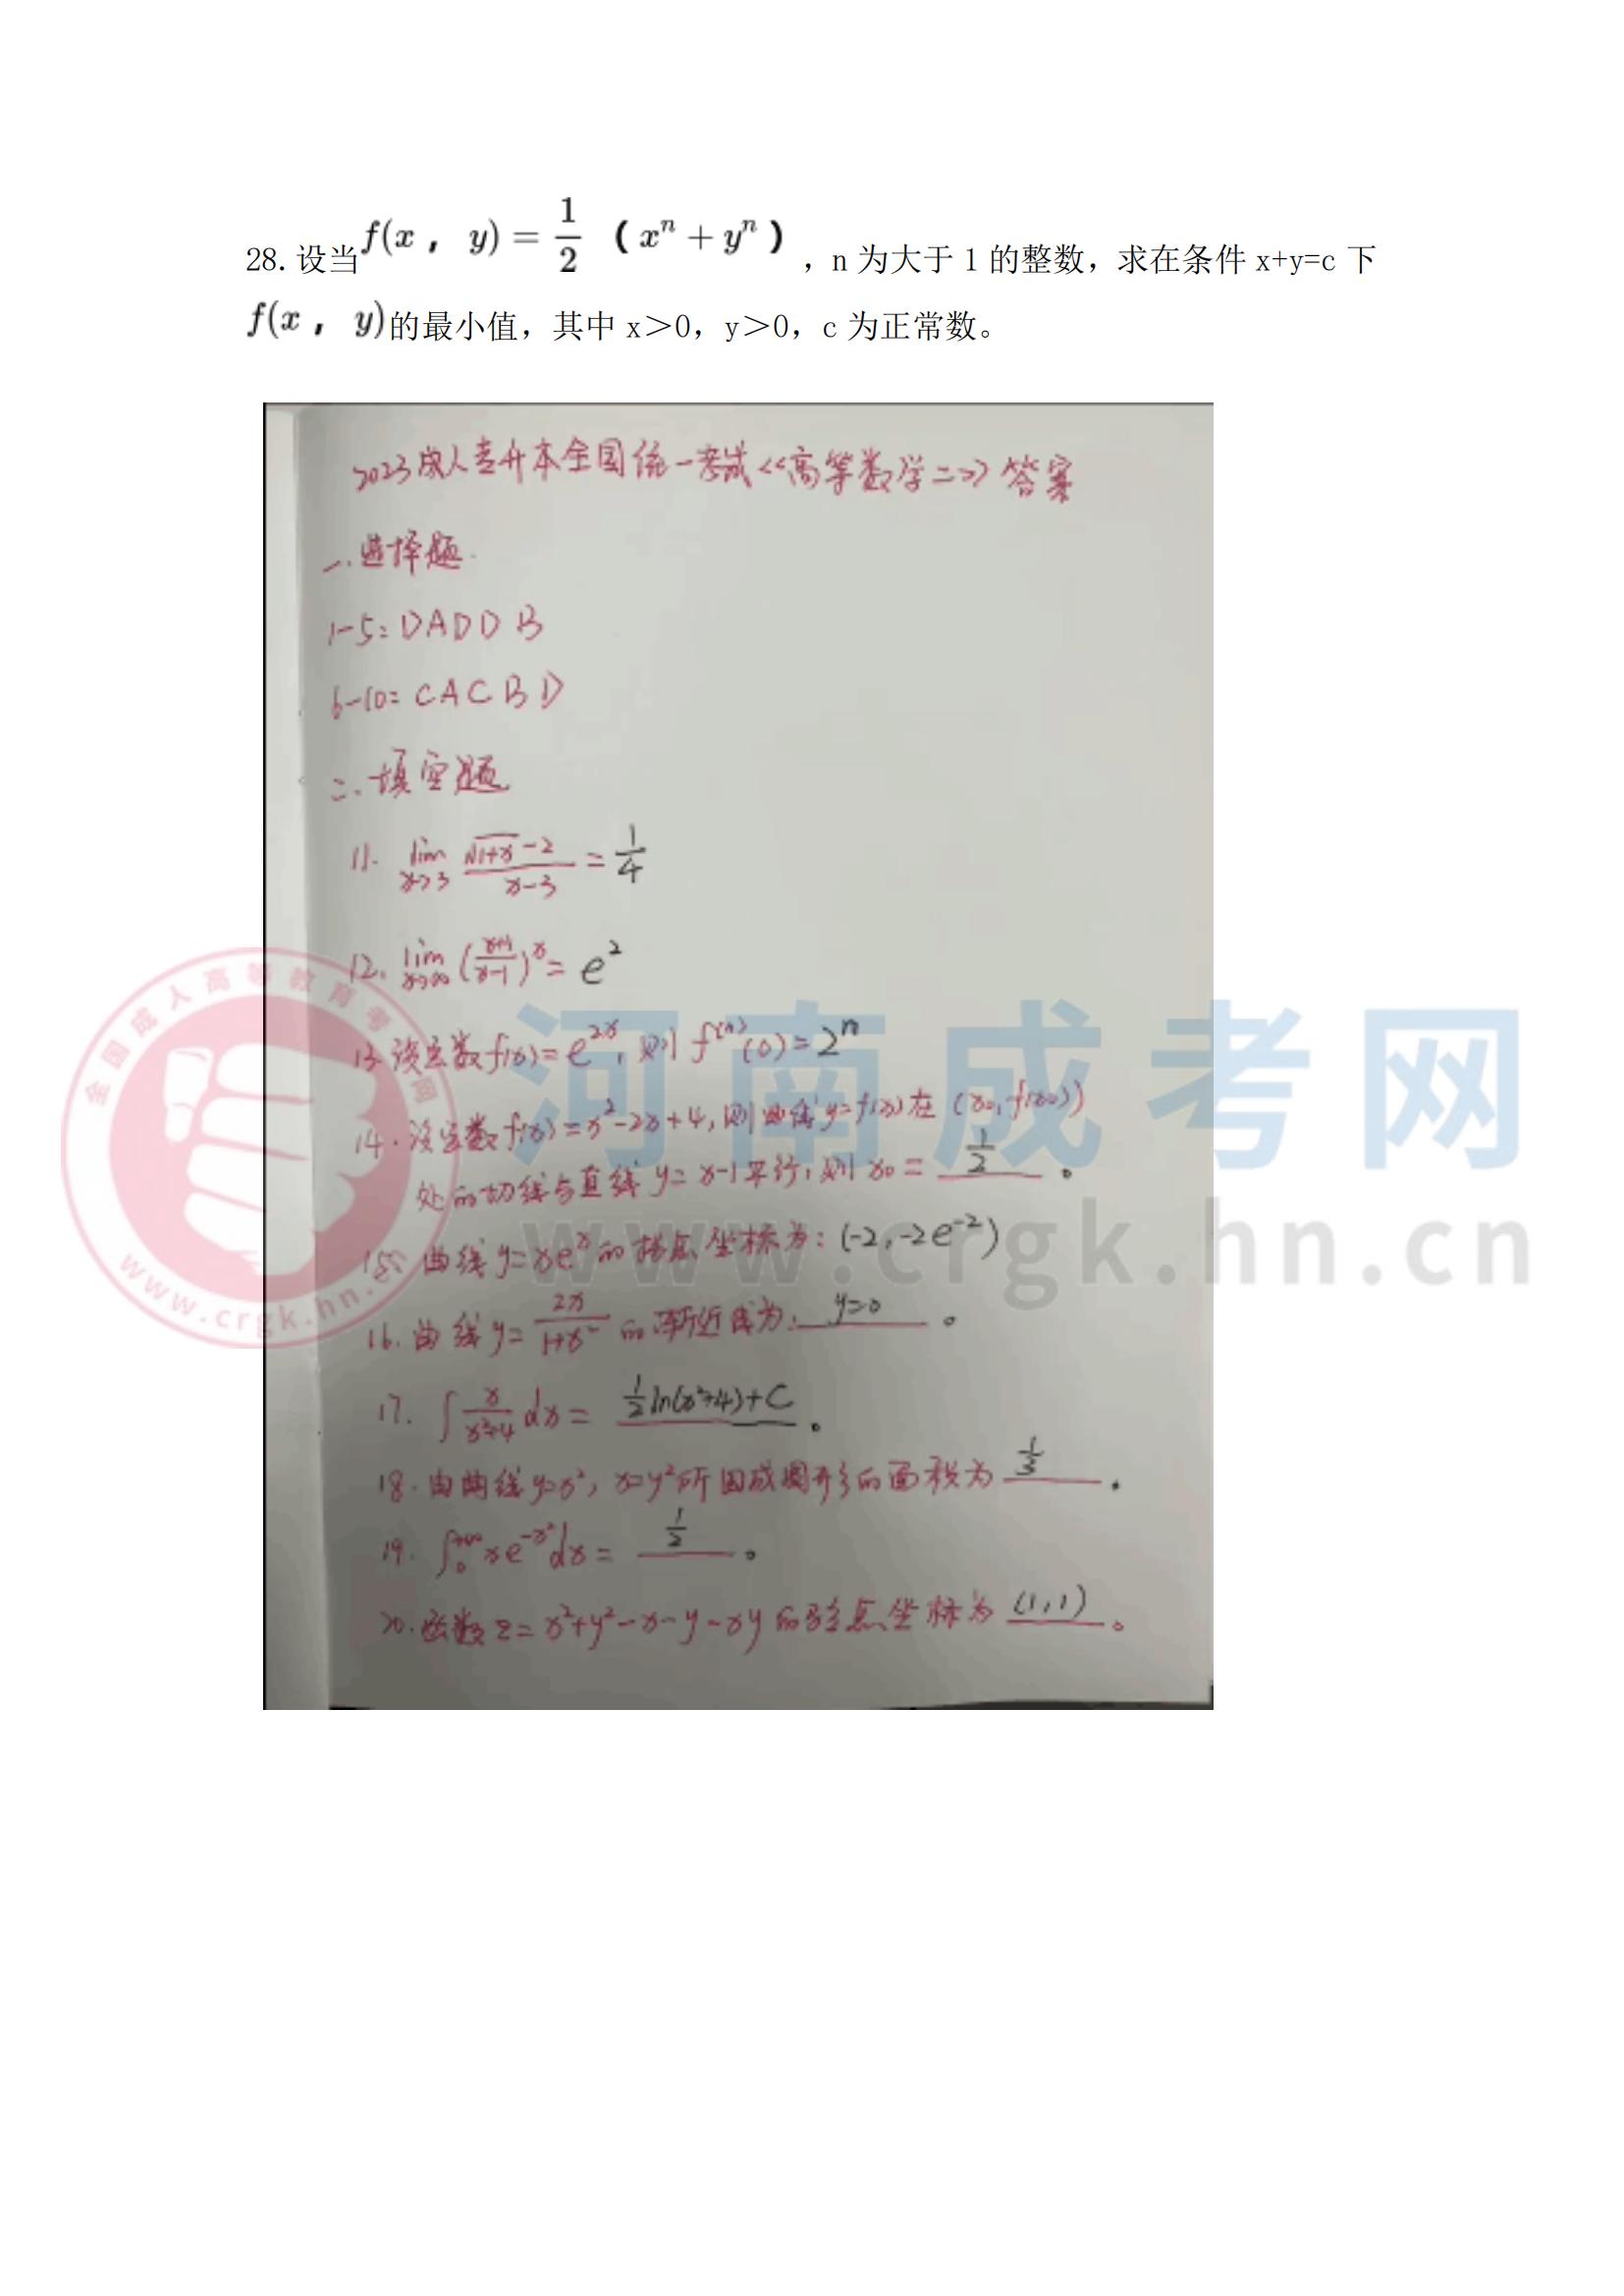 28.设当f(x，y)=1/2（xⁿ+yⁿ），n为大于1的整数，求在条件x+y=c下
f(x，y)的最小值，其中x＞0，y＞0，c为正常数。
2023成人专升本全国统一考试《高等数学二》答案
一.选择题.
1-5: DADDB
6-10: CACBD
二.填空题
11. lim x→3 (√(1+x) -2)/(x-3) = 1/4
12. lim x→∞ ((x+1)/(x-1))^x = e²
13.设函数f(x)=e^(2x), 则f^(n)(0)=2ⁿ
14.设函数f(x)=x²-2x+4,则曲线y=f(x)在(x0,f(x0))
处的切线与直线y=x-1平行,则x0= 1/2 。
15. 曲线y=xe^x的拐点坐标为: (-2,-2e^(-2))
16.曲线y=2x/(1+x²)的渐近线为: y=0 。
17. ∫ x/(x²+4) dx= 1/2 ln(x²+4)+C 。
18.由曲线y=x², x=y²所围成图形的面积为 1/3 .
19. ∫₀^(+∞) xe^(-x²)dx= 1/2 。
20.函数z=x²+y²-x-y-xy的驻点坐标为 (1,1) 。
全国成人高等教育考试网
www.crgk.hn.cn
河南成考网
www.crgk.hn.cn